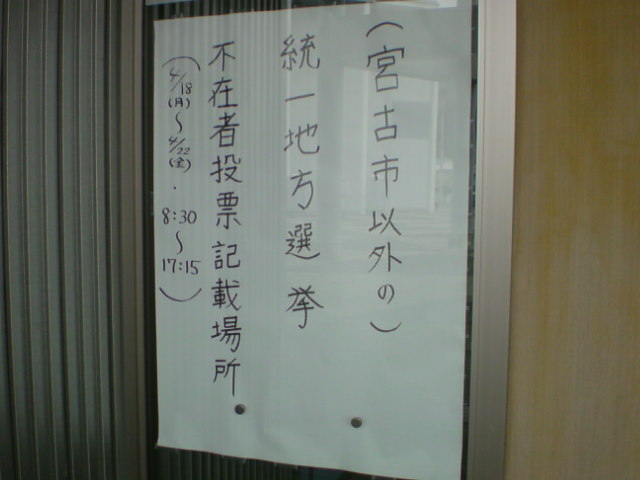 (宮古市以外の)
統一地方選挙
不在者投票記載場所
(4/18(月)〜4/22(金)・8:30〜17:15)